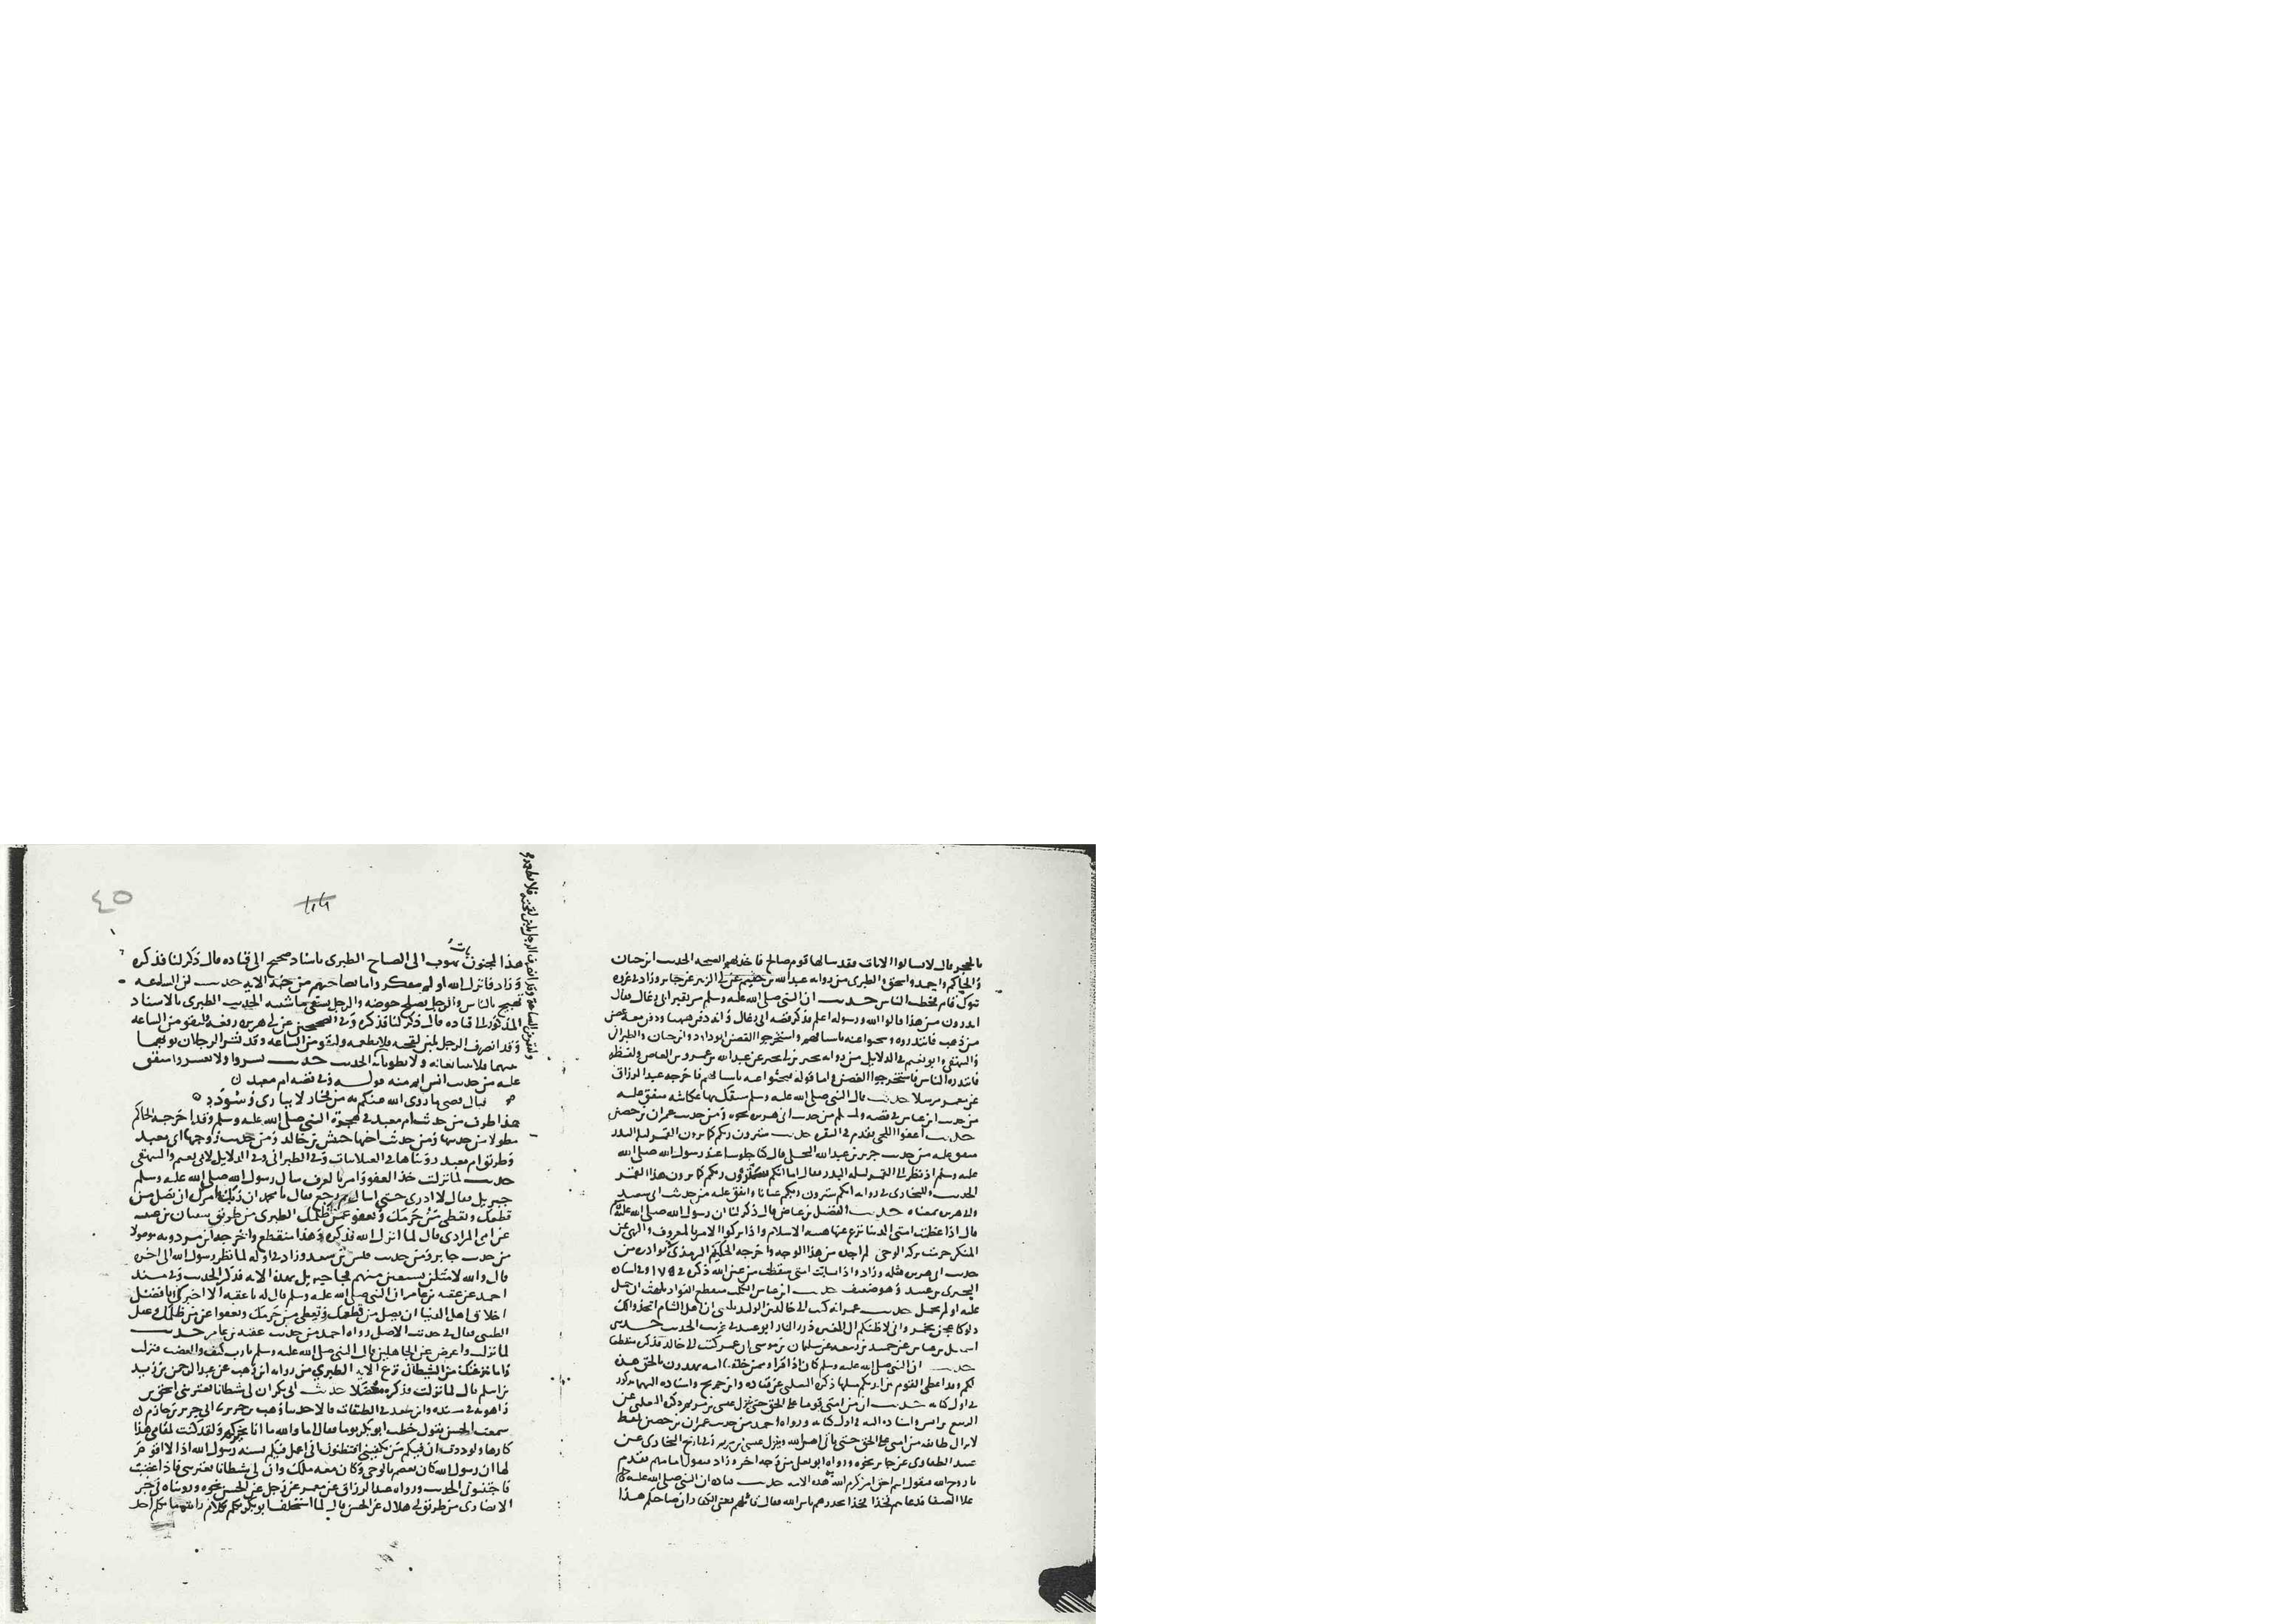 بالحجر قال لا تسالوا الايات فقد سالها قوم صالح فاخذتهم الصيحة الحديث ابن حبان
والحاكم واحمد واسحق والطبري من رواية عبد الله بن خثيم عن ابي الزبير عن جابر وزاد في غزوة
تبوك قام فخطب الناس حديث ان النبي صلى الله عليه وسلم مر بقبر ابي رغال فقال
اتدرون من هذا قالوا الله ورسوله اعلم فذكر قصة ابي رغال وانه دفن ههنا ودفن معه غصن
من ذهب فابتدروه وبحثوا عنه باسيافهم واستخرجوا الغصن ابو داود وابن حبان والطبراني
والبيهقي وابو نعيم في الدلايل من رواية بجير بن ابي بجير عن عبد الله بن عمرو بن العاص ولفظه
فابتدره الناس فاستخرجوا الغصن واما قوله فبحثوا عنه باسيافهم فاخرجه عبد الرزاق
عن معمر مرسلا حديث قال النبي صلى الله عليه وسلم سبقك بها عكاشة متفق عليه
من حديث ابن عباس في قصة ولمسلم من حديث ابي هريرة نحوه ومن حديث عمران بن حصين
حديث اعفوا اللحى تقدم في البقرة حديث سترون ربكم كما ترون القمر ليلة البدر
متفق عليه من حديث جرير بن عبد الله البجلي قال كنا جلوسا عند رسول الله صلى الله
عليه وسلم اذ نظر الى القمر ليلة البدر فقال اما انكم سترون ربكم كما ترون هذا القمر
الحديث وللبخاري في رواية انكم سترون ربكم عيانا واتفق عليه من حديث ابي سعيد
وابي هريرة بمعناه حديث الفضيل بن عياض قال ذكر لنا ان رسول الله صلى الله عليه وسلم
قال اذا عظمت امتي الدنيا نزع عنها هيبة الاسلام واذا تركوا الامر بالمعروف والنهي عن
المنكر حرمت بركة الوحي لم اجده من هذا الوجه واخرجه الحكيم الترمذي في نوادره من
حديث ابي هريرة مثله وزاد واذا تسابت امتي سقطت من عين الله ذكره في ١٧٩ وفي اسناده
البختري بن عبيد وهو ضعيف حديث ابن عباس الكلب منقطع الفؤاد يلهث ان حمل
عليه او لم يحمل حديث عمر انه كتب الى خالد بن الوليد بلغني ان اهل الشام اتخذوا لك
دلوكا عجن بخمر واني لاظنكم ال المغيرة ذرء النار ابو عبيد في غريب الحديث حدثني
اسمعيل بن عياش عن حميد بن ربيعة عن سليمان بن موسى ان عمر كتب الى خالد فذكره منقطعا
حديث ان النبي صلى الله عليه وسلم كان اذا قرا وممن خلقنا امة يهدون بالحق هذه
لكم وقد اعطي القوم بين ايديكم مثلها ذكره الثعلبي عن قتادة وابن جريج واسناده اليهما مذكور
في اول كتابه حديث ان من امتي قوما على الحق حتى ينزل عيسى بن مريم ذكره الثعلبي عن
الربيع بن انس واسناده اليه في اول كتابه ورواه احمد من حديث عمران بن حصين بلفظ
لا تزال طائفة من امتي على الحق حتى ياتي امر الله وينزل عيسى بن مريم وفي تاريخ البخاري عن
عبيد الطفاوي عن جابر نحوه ورواه ابو يعلى من وجه اخر وزاد فيقول امامهم تقدم
يا روح الله فيقول انتم احق امر كرم الله به هذه الامة حديث قتادة ان النبي صلى الله عليه وسلم
علا الصفا فدعاهم فخذا فخذا يحذرهم باس الله فقال قائلهم يعني الكفار ان صاحبكم هذا
٤٥
هذا لمجنون بات يهوت الى الصباح الطبري باسناد صحيح الى قتادة قال ذكر لنا فذكره
وزاد فانزل الله اولم يتفكروا ما بصاحبهم من جنة الاية حديث ان الساعة
تهيج بالناس والرجل يصلح حوضه والرجل يسقي ماشيته الحديث الطبري بالاسناد
المذكور الى قتادة قال ذكر لنا فذكره وفي الصحيحين عن ابي هريرة رفعه لتقومن الساعة
وقد انصرف الرجل بلبن لقحته فلا يطعمه ولتقومن الساعة وقد نشر الرجلان ثوبهما
بينهما فلا يتبايعانه ولا يطويانه الحديث حديث يسروا ولا تعسروا متفق
عليه من حديث انس اتم منه قوله وفي قصة ام معبد
فيال قصي ما زوى الله عنكم به من فخار لا يبارى وسودد
هذا طرف من حديث ام معبد في هجرة النبي صلى الله عليه وسلم وقد اخرجه الحاكم
مطولا من حديثها ومن حديث اخيها حبيش بن خالد ومن حديث زوجها ابي معبد
وطريق ام معبد رويناها في الغيلانيات وفي الطبراني وفي الدلايل لابي نعيم والبيهقي
حديث لما نزلت خذ العفو وامر بالعرف سال رسول الله صلى الله عليه وسلم
جبريل فقال لا ادري حتى اسال ثم رجع فقال يا محمد ان ربك امرك ان تصل من
قطعك وتعطي من حرمك وتعفو عمن ظلمك الطبري من طريق سفيان بن عيينة
عن امي المرادي قال لما انزل الله فذكره وهذا منقطع واخرجه ابن مردويه موصولا
من حديث جابر ومن حديث قيس بن سعد وزاد في اوله لما نظر رسول الله الى حمزة
قال والله لامثلن بسبعين منهم فجا جبريل بهذه الاية فذكر الحديث وفي مسند
احمد عن عقبة بن عامر ان النبي صلى الله عليه وسلم قال له يا عقبة الا اخبرك بافضل
اخلاق اهل الدنيا ان تصل من قطعك وتعطي من حرمك وتعفوا عن من ظلمك وغفل
الطيبي فقال في حديث الاصل رواه احمد من حديث عقبة بن عامر حديث
لما نزلت واعرض عن الجاهلين قال النبي صلى الله عليه وسلم يا رب كيف والغضب فنزلت
واما ينزغنك من الشيطان نزغ الاية الطبري من رواية ابن وهب عن عبد الرحمن بن زيد
بن اسلم قال لما نزلت فذكره معضلا حديث ابي بكر ان لي شيطانا يعتريني اسحق بن
راهويه في مسنده وابن سعد في الطبقات قالا حدثنا وهب بن جرير ثنا ابي جرير بن حازم
سمعت الحسن يقول خطب ابو بكر يوما فقال اما والله ما انا بخيركم ولقد كنت لمقامي هذا
كارها ولوددت ان فيكم من يكفيني افتظنون اني اعمل فيكم بسنة رسول الله اذا لا اقوم
لها ان رسول الله كان يعصم بالوحي وكان معه ملك وان لي شيطانا يعتريني فاذا غضبت
فاجتنبوني الحديث ورواه عبد الرزاق عن معمر عن رجل عن الحسن نحوه ورويناه في جزء
الانصاري من طريق ابي هلال عن الحسن قال لما استخلف ابو بكر تكلم بكلام